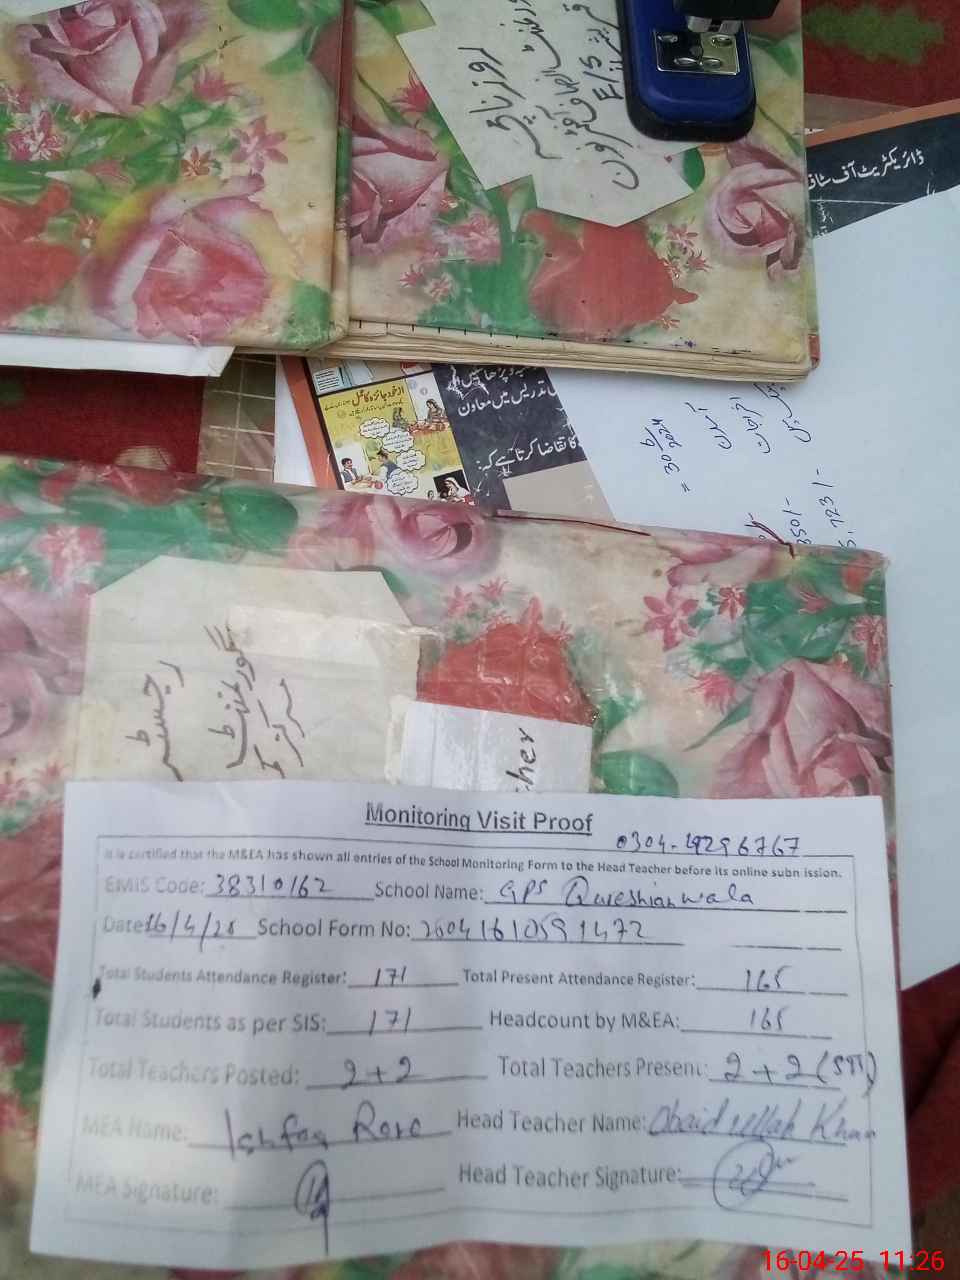 روزنامچہ
F/S
ڈائریکٹریٹ آف سٹاف
از خود جائزہ کا عمل
تدریس میں معاون
کا تقاضا کرتا ہے کہ:
= 30/6/2024
آمدن
اخراجات
رجسٹر
گورنمنٹ
مرکز
cher
Monitoring Visit Proof
0304-4296767
It is certified that the M&EA has shown all entries of the School Monitoring Form to the Head Teacher before its online subn ission.
EMIS Code: 38310162 School Name: GPS Qureshianwala
Date: 16/4/25 School Form No: 25041610591472
Total Students Attendance Register: 171 Total Present Attendance Register: 165
Total Students as per SIS: 171 Headcount by M&EA: 165
Total Teachers Posted: 2+2 Total Teachers Present: 2+2 (STI)
MEA Name: Ishfaq Head Teacher Name: Obaid ullah Khan
MEA Signature: Head Teacher Signature:
16-04-25 11:26